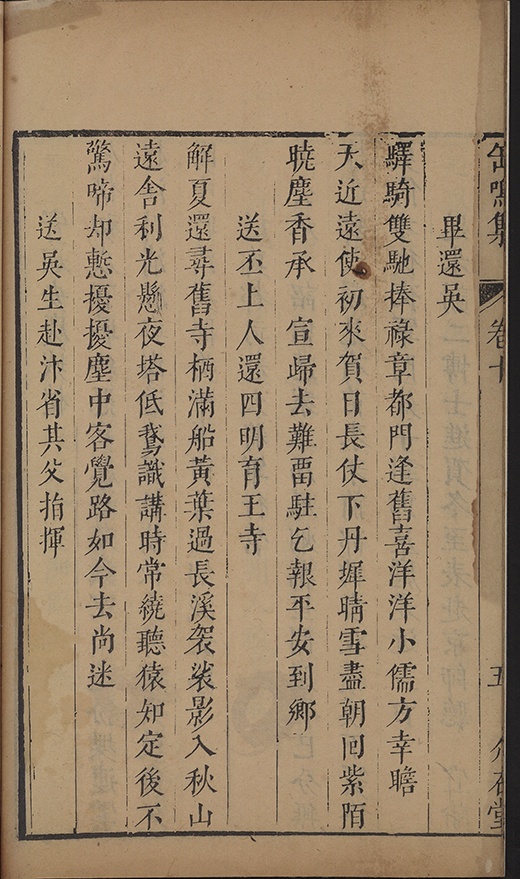 缶鳴集 卷十 五
畢還吳
驛騎雙馳捧祿章都門逢舊喜洋洋小儒方幸瞻
天近遠使初來賀日長仗下丹墀晴雪盡朝回紫陌
曉塵香承 宣歸去難畱駐乞報平安到鄉
送丕上人還四明育王寺
解夏還尋舊寺栖滿船黃葉過長溪袈裟影入秋山
遠舍利光懸夜塔低鵞識講時常繞聽猿知定後不
驚啼却慙擾擾塵中客覺路如今去尚迷
送吳生赴汴省其父指揮